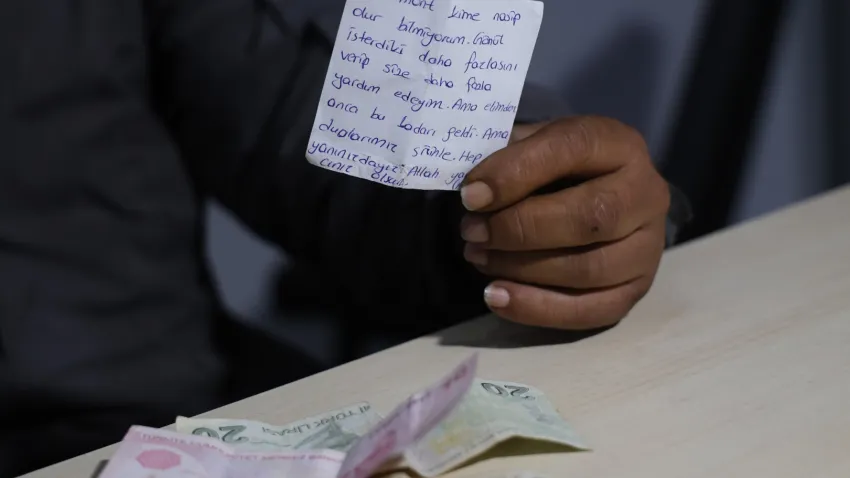 mont kime nasip
dur bilmiyorum. Gönül
isterdiki daha fazlasını
verip size daha fazla
yardım edeyim. Ama elimden
anca bu kadarı geldi. Ama
dualarımız sizinle. Hep
yanınızdayız. Allah
cınız olsun.
20
20 TÜRK LİRASI